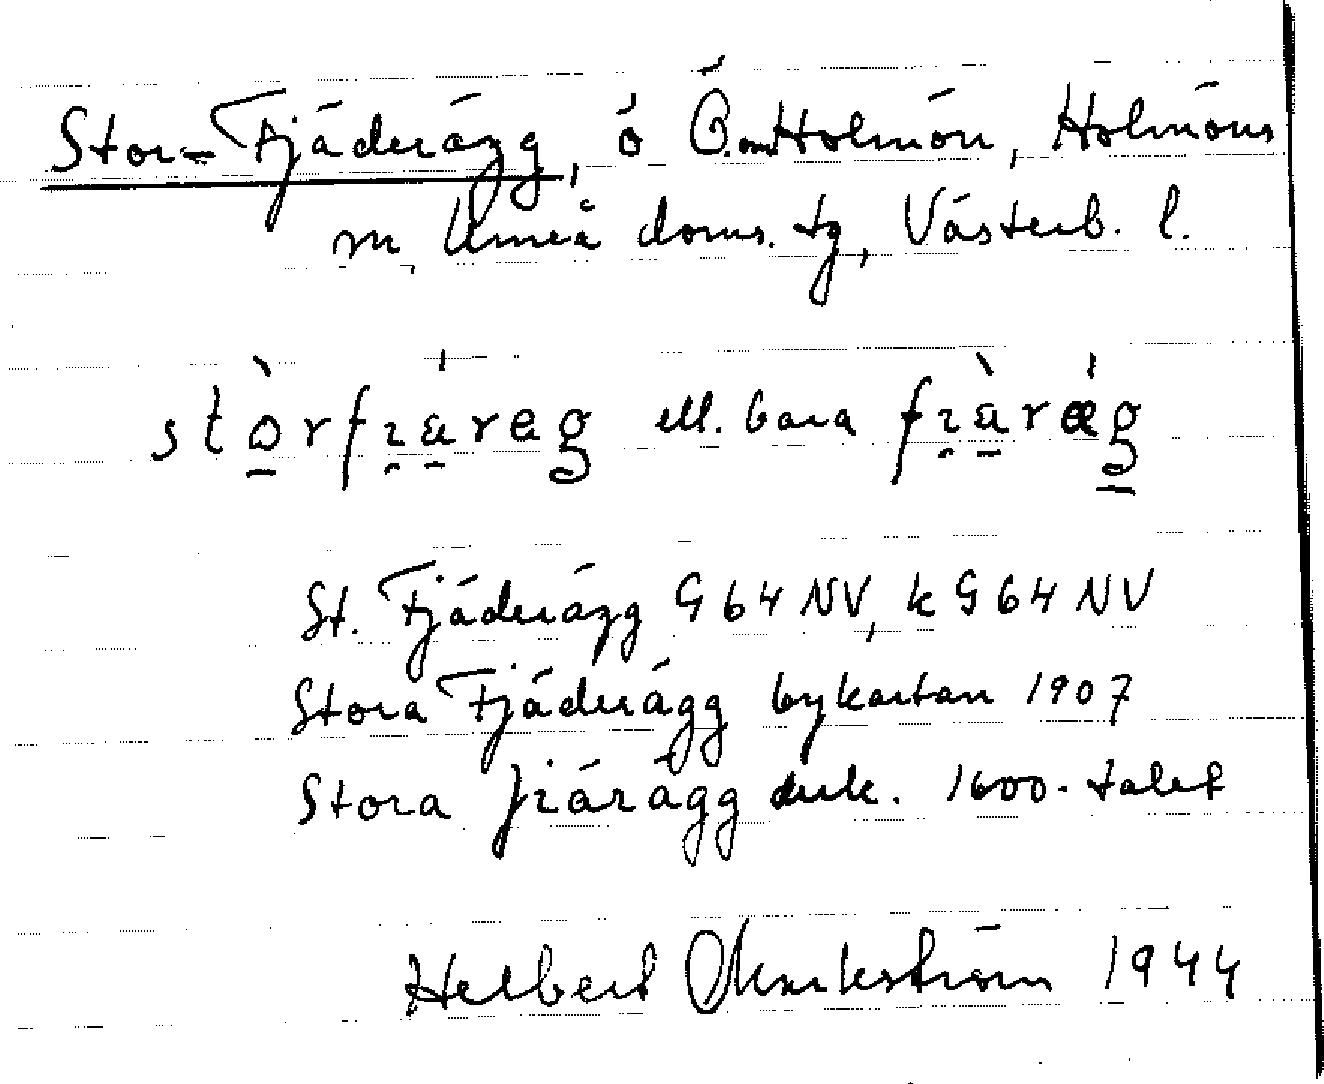 Stor-Fjäderägg, ö Ö. om Holmön, Holmöns
m, Umeå doms. tg, Västerb. l.
stòrfɪ̯áreg ell. bara fɪ̯àrǽg
St. Fjäderägg G 64 NV, k G 64 NV
Stora Fjäderägg bykartan 1907
Stora fiärägg 1600-talet
Helbert 1944